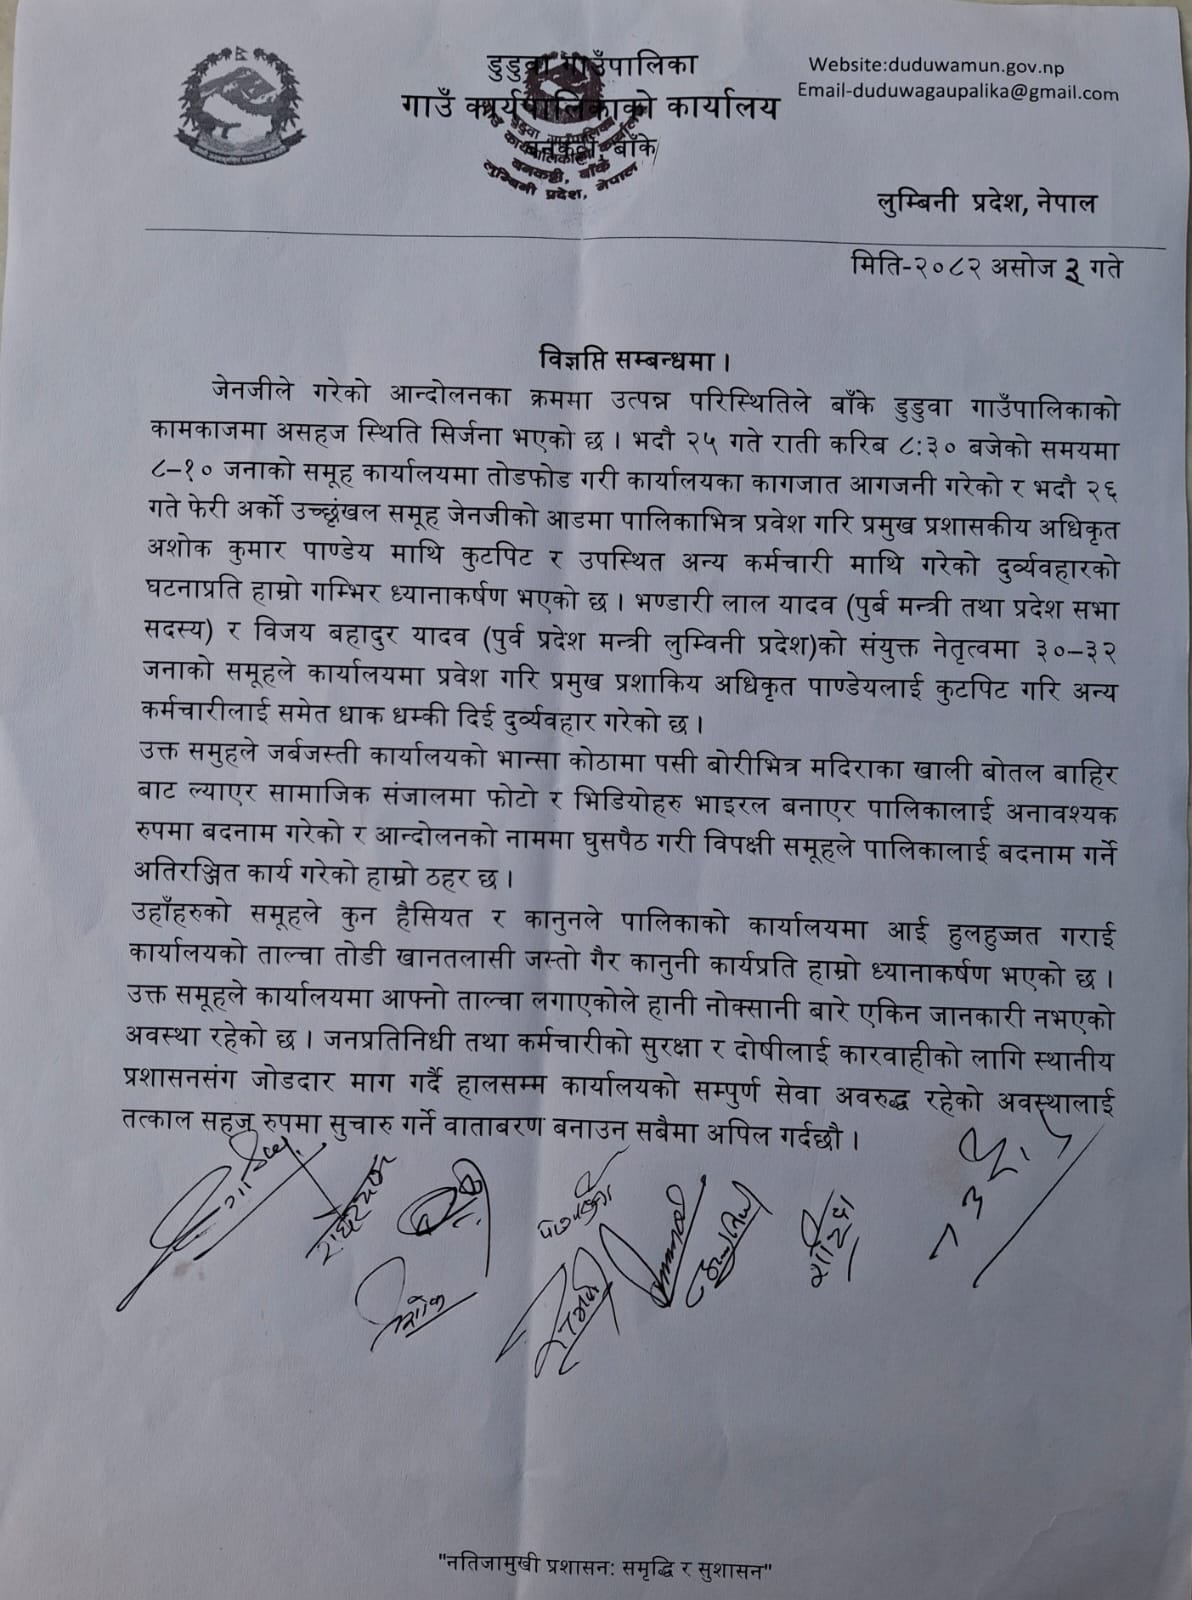 डुडुवा गाउँपालिका
गाउँ कार्यपालिकाको कार्यालय
बनकट्टी, बाँके
Website:duduwamun.gov.np
Email-duduwagaupalika@gmail.com
डुडुवा गाउँपालिका
गाउँ कार्यपालिकाको कार्यालय
बनकट्टी, बाँके
लुम्बिनी प्रदेश, नेपाल
लुम्बिनी प्रदेश, नेपाल
मिति-२०८२ असोज ३ गते
विज्ञप्ति सम्बन्धमा ।
जेनजीले गरेको आन्दोलनका क्रममा उत्पन्न परिस्थितिले बाँके डुडुवा गाउँपालिकाको
कामकाजमा असहज स्थिति सिर्जना भएको छ । भदौ २५ गते राती करिब ८:३० बजेको समयमा
८–१० जनाको समूह कार्यालयमा तोडफोड गरी कार्यालयका कागजात आगजनी गरेको र भदौ २६
गते फेरी अर्को उच्छृंखल समूह जेनजीको आडमा पालिकाभित्र प्रवेश गरि प्रमुख प्रशासकीय अधिकृत
अशोक कुमार पाण्डेय माथि कुटपिट र उपस्थित अन्य कर्मचारी माथि गरेको दुर्व्यवहारको
घटनाप्रति हाम्रो गम्भिर ध्यानाकर्षण भएको छ । भण्डारी लाल यादव (पुर्ब मन्त्री तथा प्रदेश सभा
सदस्य) र विजय बहादुर यादव (पुर्व प्रदेश मन्त्री लुम्विनी प्रदेश)को संयुक्त नेतृत्वमा ३०–३२
जनाको समूहले कार्यालयमा प्रवेश गरि प्रमुख प्रशाकिय अधिकृत पाण्डेयलाई कुटपिट गरि अन्य
कर्मचारीलाई समेत धाक धम्की दिई दुर्व्यवहार गरेको छ ।
उक्त समुहले जर्बजस्ती कार्यालयको भान्सा कोठामा पसी बोरीभित्र मदिराका खाली बोतल बाहिर
बाट ल्याएर सामाजिक संजालमा फोटो र भिडियोहरु भाइरल बनाएर पालिकालाई अनावश्यक
रुपमा बदनाम गरेको र आन्दोलनको नाममा घुसपैठ गरी विपक्षी समूहले पालिकालाई बदनाम गर्ने
अतिरञ्जित कार्य गरेको हाम्रो ठहर छ ।
उहाँहरुको समूहले कुन हैसियत र कानुनले पालिकाको कार्यालयमा आई हुलहुज्जत गराई
कार्यालयको ताल्चा तोडी खानतलासी जस्तो गैर कानुनी कार्यप्रति हाम्रो ध्यानाकर्षण भएको छ ।
उक्त समूहले कार्यालयमा आफ्नो ताल्चा लगाएकोले हानी नोक्सानी बारे एकिन जानकारी नभएको
अवस्था रहेको छ । जनप्रतिनिधी तथा कर्मचारीको सुरक्षा र दोषीलाई कारवाहीको लागि स्थानीय
प्रशासनसंग जोडदार माग गर्दै हालसम्म कार्यालयको सम्पुर्ण सेवा अवरुद्ध रहेको अवस्थालाई
तत्काल सहज रुपमा सुचारु गर्ने वाताबरण बनाउन सबैमा अपिल गर्दछौ ।
"नतिजामुखी प्रशासन: समृद्धि र सुशासन"